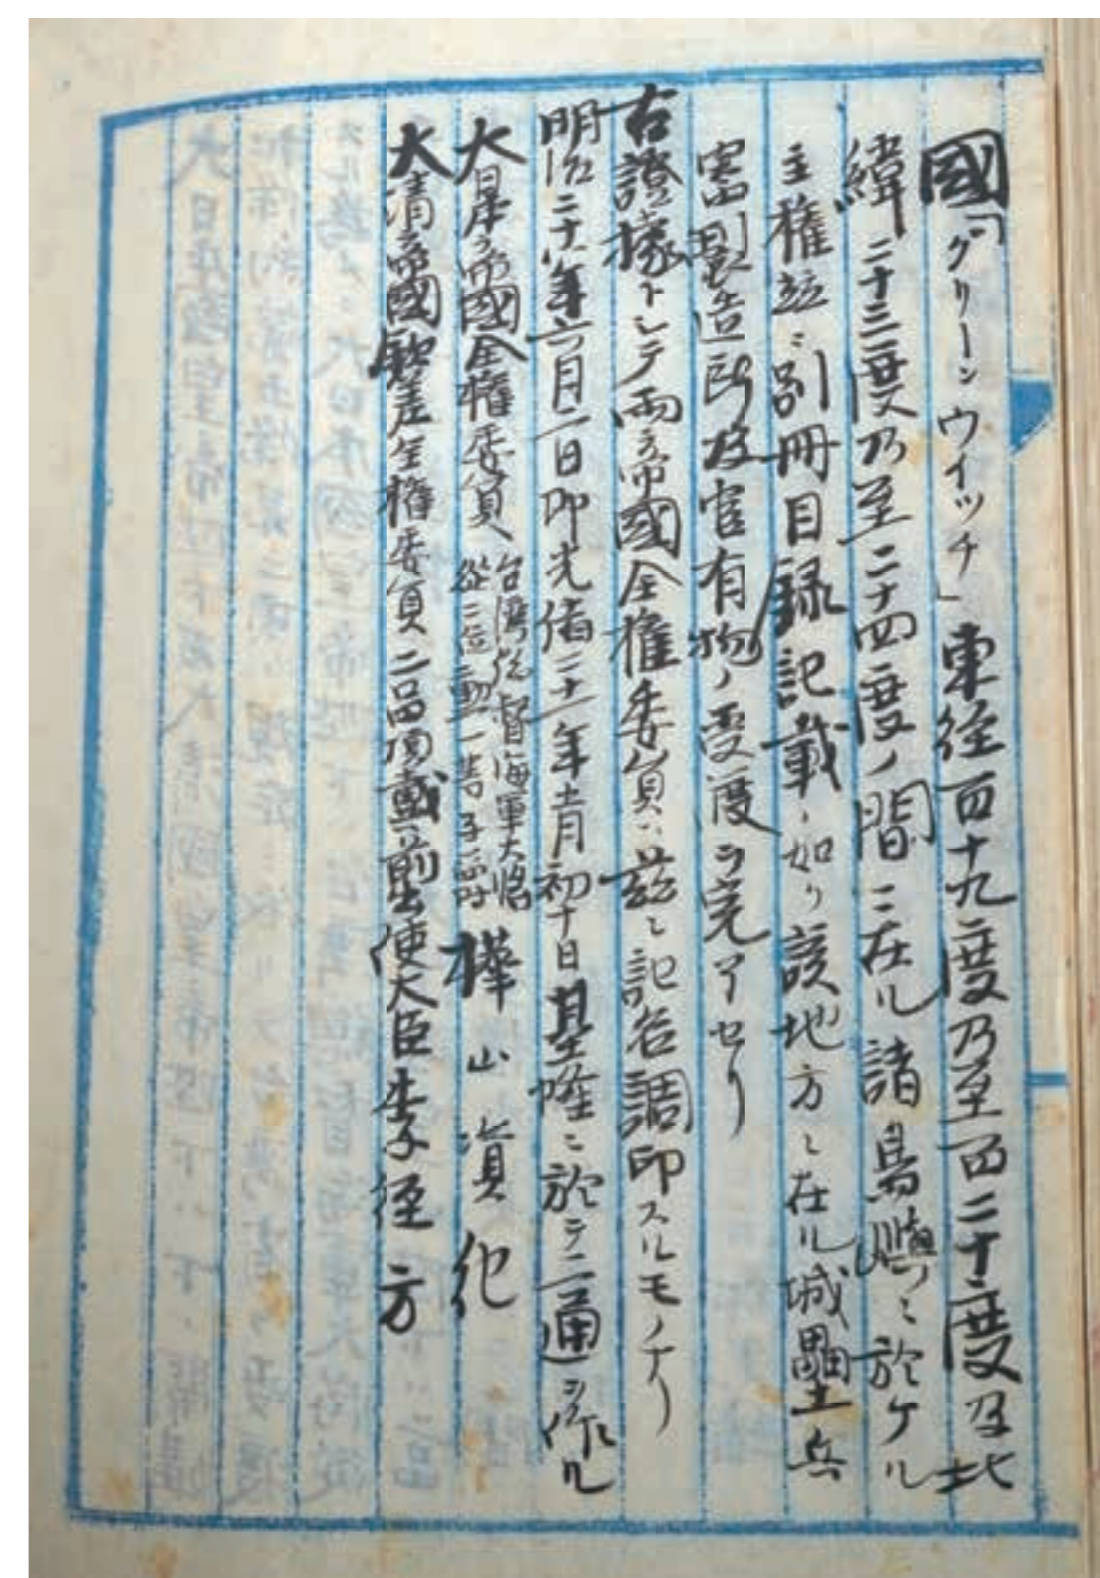 國「グリーンウイッチ」東経百十九度乃至百二十度及北
緯二十三度乃至二十四度ノ間ニ在ル諸島嶼ニ於ケル
主権並ニ別冊目録記載ノ如ク該地方ニ在ル城壘兵
器製造所及官有物ノ受渡ヲ完了セリ
右證據トシテ両帝國全権委員ハ茲ニ記名調印スルモノナリ
明治二十八年六月二日即光緒二十一年五月初十日基隆ニ於テ二通ヲ作ル
大日本帝國全権委員 台湾総督海軍大将
従二位勲一等子爵 樺山資紀
大清帝國欽差全権委員二品頂戴前出使大臣李経方